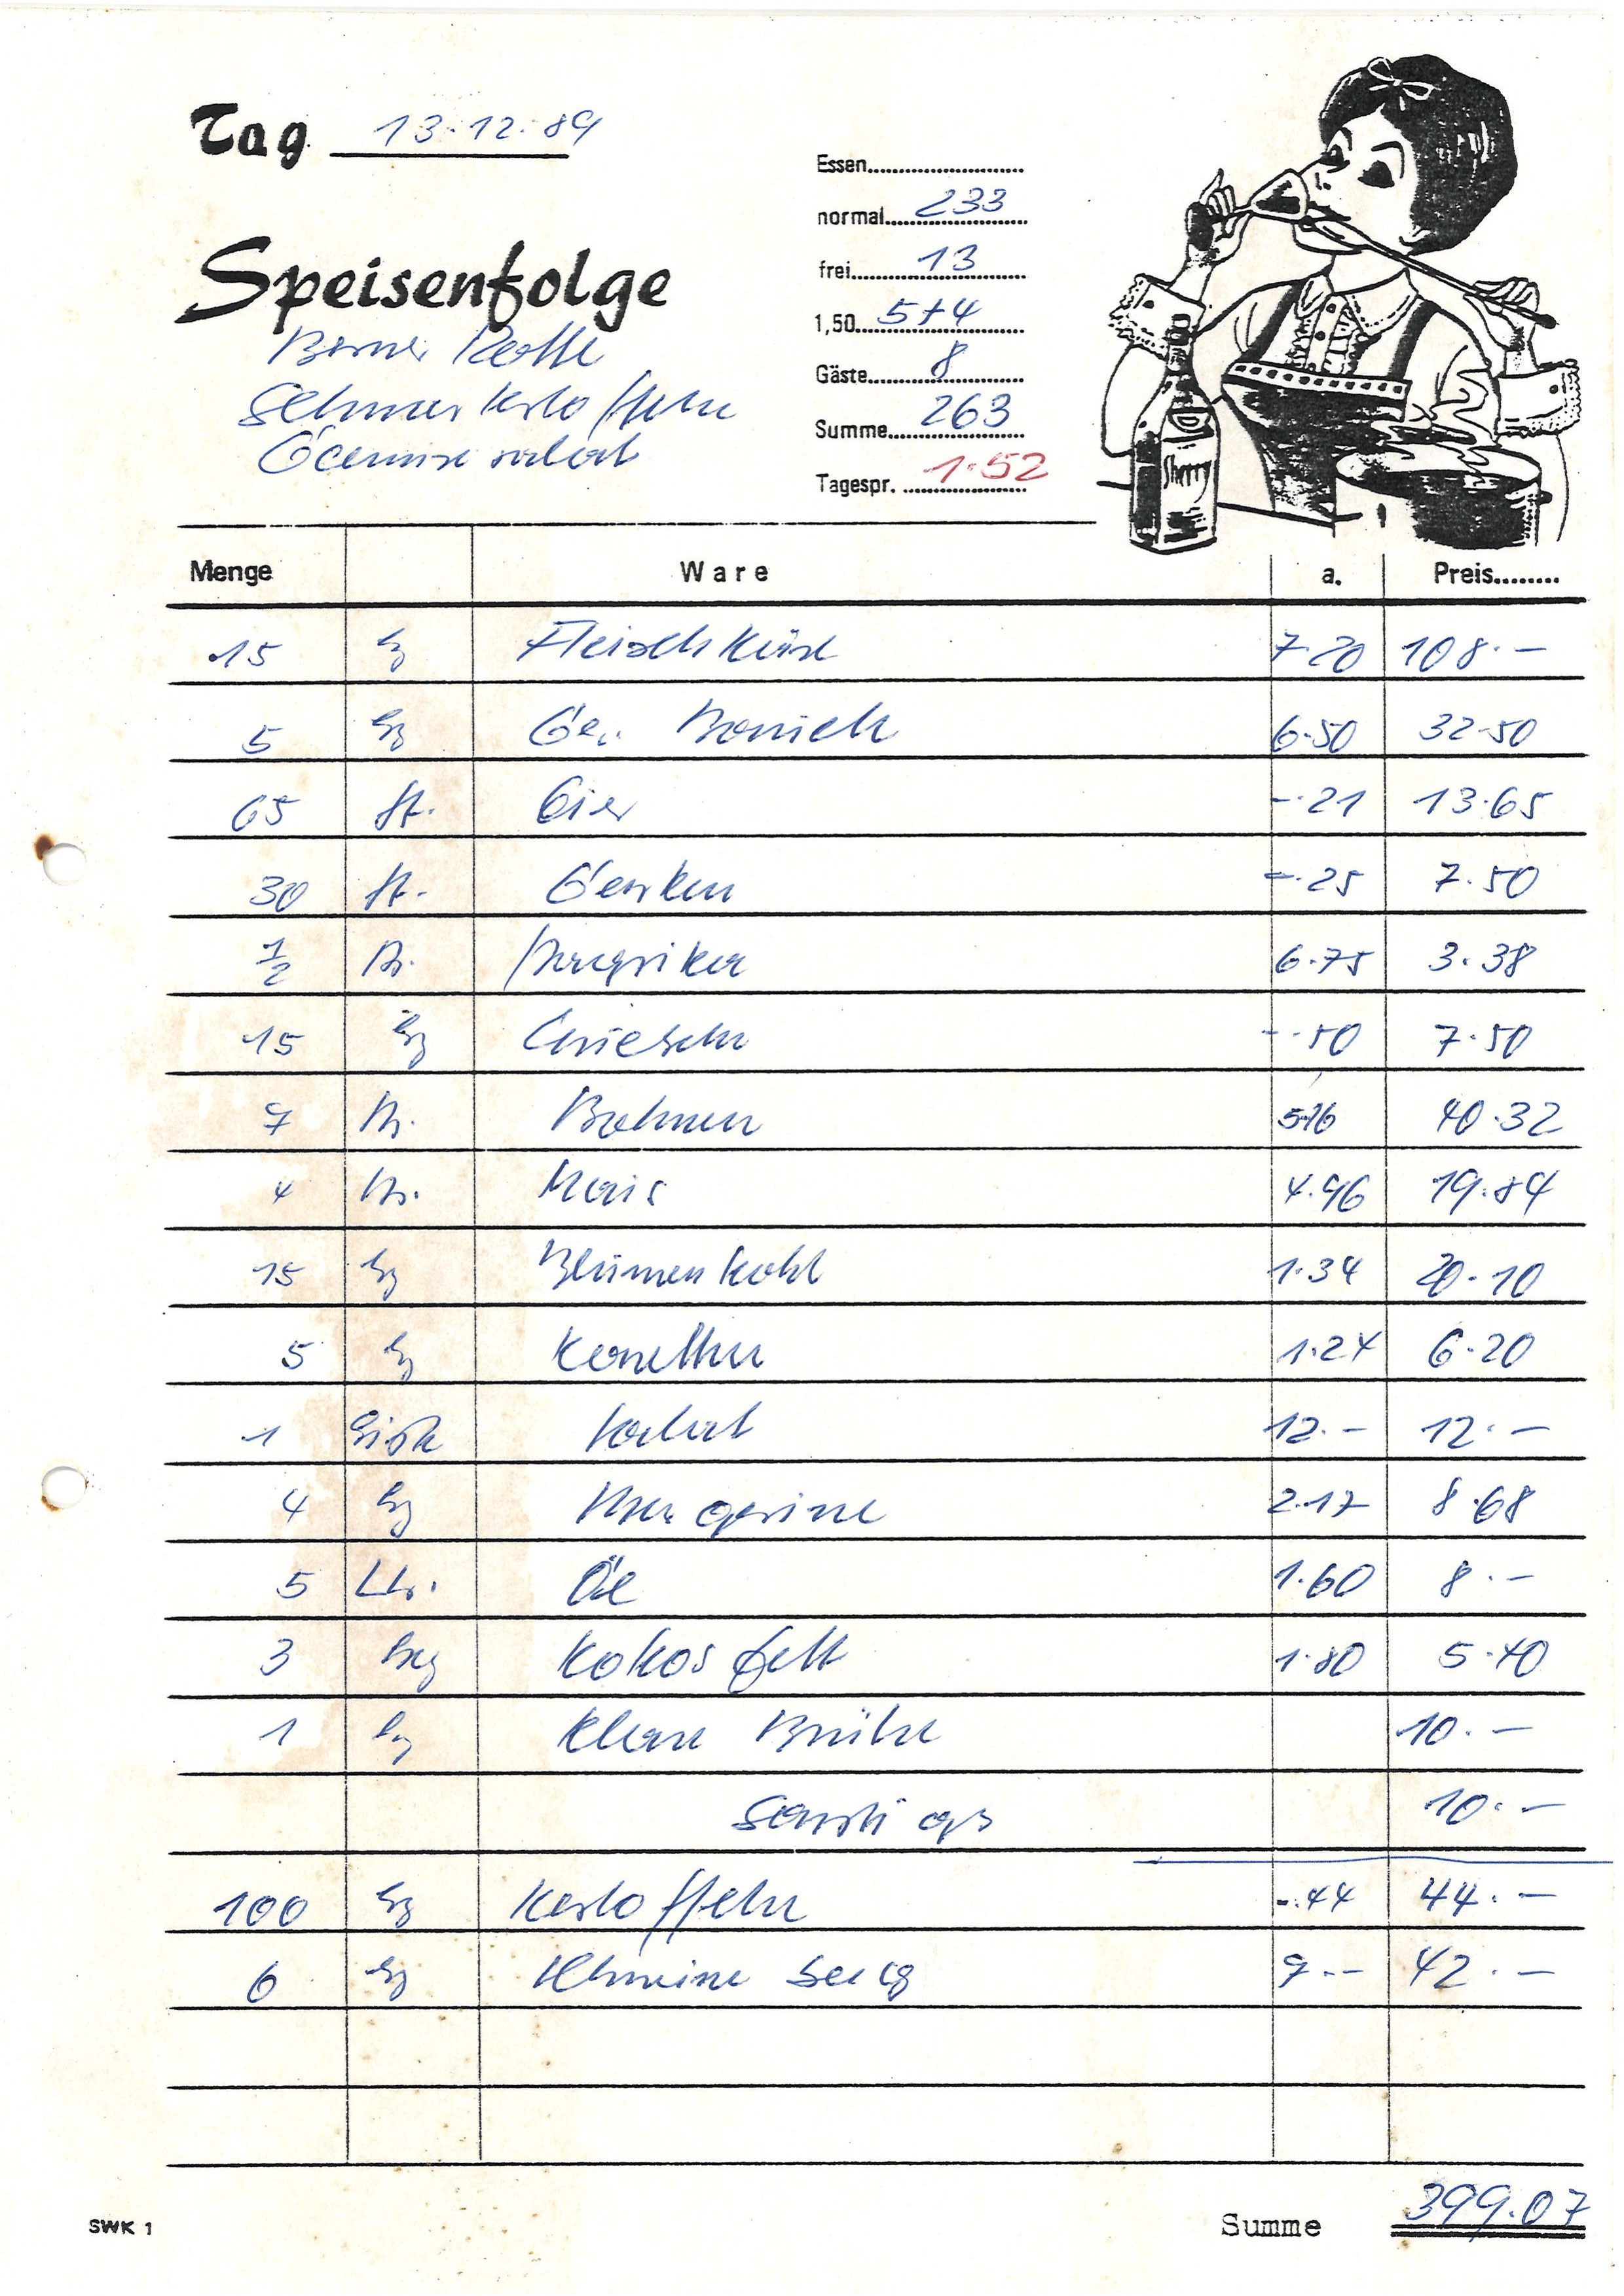 Tag 13.12.89
Speisenfolge
Berner Rolle
Gemüsesalat
Essen
normal 233
frei 13
1,50 5+4
Gäste 8
Summe 263
Tagespr. 1.52
Sherry
Menge Ware a. Preis
15 kg Fleischkäse 7.20 108.-
5 kg Ger. Bauch 6.50 32.50
65 St. Eier -.21 13.65
30 St. Gurken -.25 7.50
1/2 Paprika 6.75 3.38
15 kg -.50 7.50
7 Bohnen 5.76 40.32
4 Mais 4.96 19.84
15 kg Blumenkohl 1.34 20.10
5 kg Karotten 1.24 6.20
1 Kiste Salat 12.- 12.-
4 kg Margarine 2.17 8.68
5 Ltr. Öl 1.60 8.-
3 kg Kokosfett 1.80 5.40
1 kg Klare Brühe 10.-
Sonstiges 10.-
100 kg Kartoffeln -.44 44.-
6 kg 7.- 42.-
SWK 1
Summe 399.07